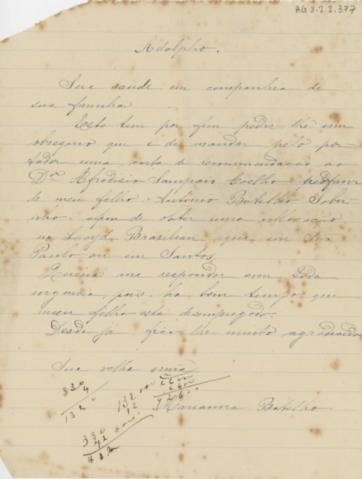 AG 3.2.2.377
Adolpho.
Sua saude em companhia de
sua familia
Esta tem por fim pedir-lhe um
obsequio que é de mandar pelo por
tador uma carta de recommendação ao
Dr. Afrodizio Sampaio Coelho
de meu filho Antonio Botelho Sobri
nho afim de obter uma collocação
no Lloyd Brasilian, aqui em São
Paulo ou em Santos.
Queira me responder com toda
urgencia, pois, ha bom tempo que
meu filho está desempregado.
Desde já fico-lhe muito agradecida
Sua velha
Marianna Botelho